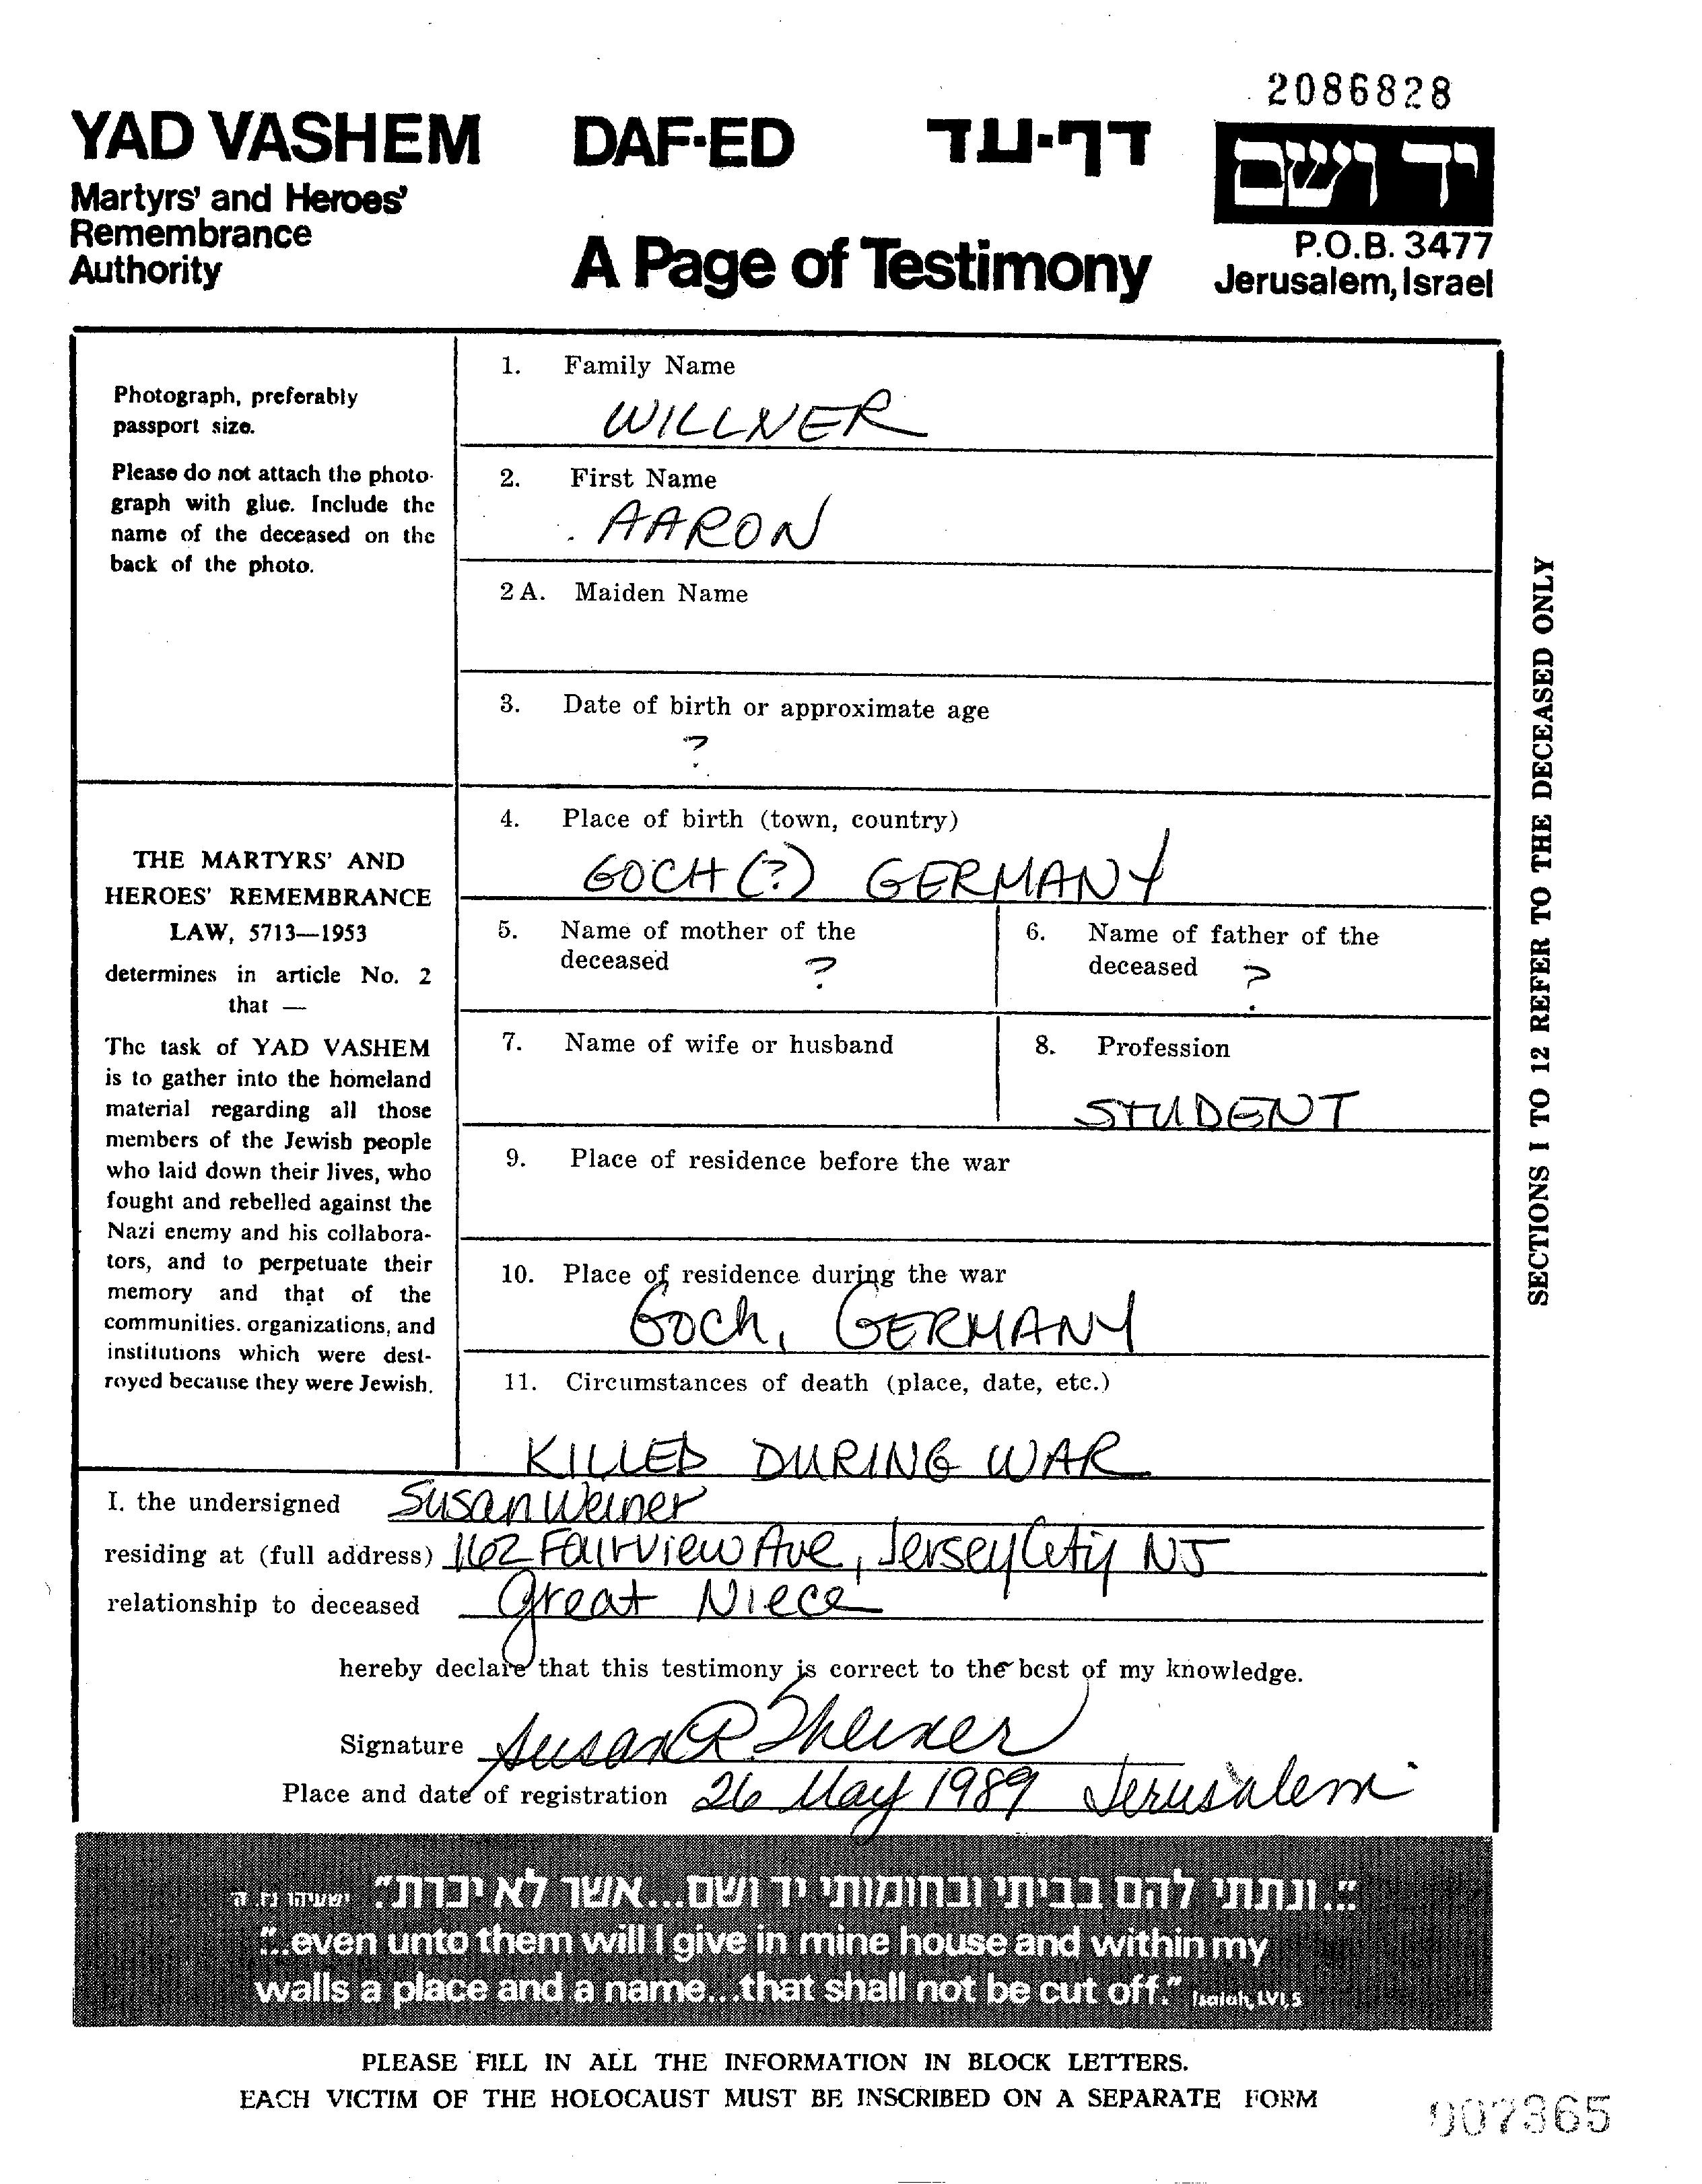 2086828
YAD VASHEM DAF-ED דף-עד יד ושם
Martyrs' and Heroes'
Remembrance
Authority
A Page of Testimony
P.O.B. 3477
Jerusalem, Israel
Photograph, preferably
passport size.
Please do not attach the photo-
graph with glue. Include the
name of the deceased on the
back of the photo.
THE MARTYRS' AND
HEROES' REMEMBRANCE
LAW, 5713—1953
determines in article No. 2
that —
The task of YAD VASHEM
is to gather into the homeland
material regarding all those
members of the Jewish people
who laid down their lives, who
fought and rebelled against the
Nazi enemy and his collabora-
tors, and to perpetuate their
memory and that of the
communities. organizations, and
institutions which were dest-
royed because they were Jewish.
1. Family Name
WILLNER
2. First Name
AARON
2 A. Maiden Name
3. Date of birth or approximate age
?
4. Place of birth (town, country)
GOCH (?) GERMANY
5. Name of mother of the
deceased ?
6. Name of father of the
deceased ?
7. Name of wife or husband
8. Profession
STUDENT
9. Place of residence before the war
10. Place of residence during the war
Goch, GERMANY
11. Circumstances of death (place, date, etc.)
KILLED DURING WAR
SECTIONS 1 TO 12 REFER TO THE DECEASED ONLY
I. the undersigned Susan Weiner
residing at (full address) 162 Fairview Ave, Jersey City NJ
relationship to deceased great Niece
hereby declare that this testimony is correct to the best of my knowledge.
Signature Susan R.
Place and date of registration 26 May 1989 Jerusalem
"...ונתתי להם בביתי ובחומותי יד ושם...אשר לא יכרת". ישעיהו נו, ה
"..even unto them will I give in mine house and within my
walls a place and a name...that shall not be cut off." Isaiah, LVI, 5
PLEASE FILL IN ALL THE INFORMATION IN BLOCK LETTERS.
EACH VICTIM OF THE HOLOCAUST MUST BE INSCRIBED ON A SEPARATE FORM
007365